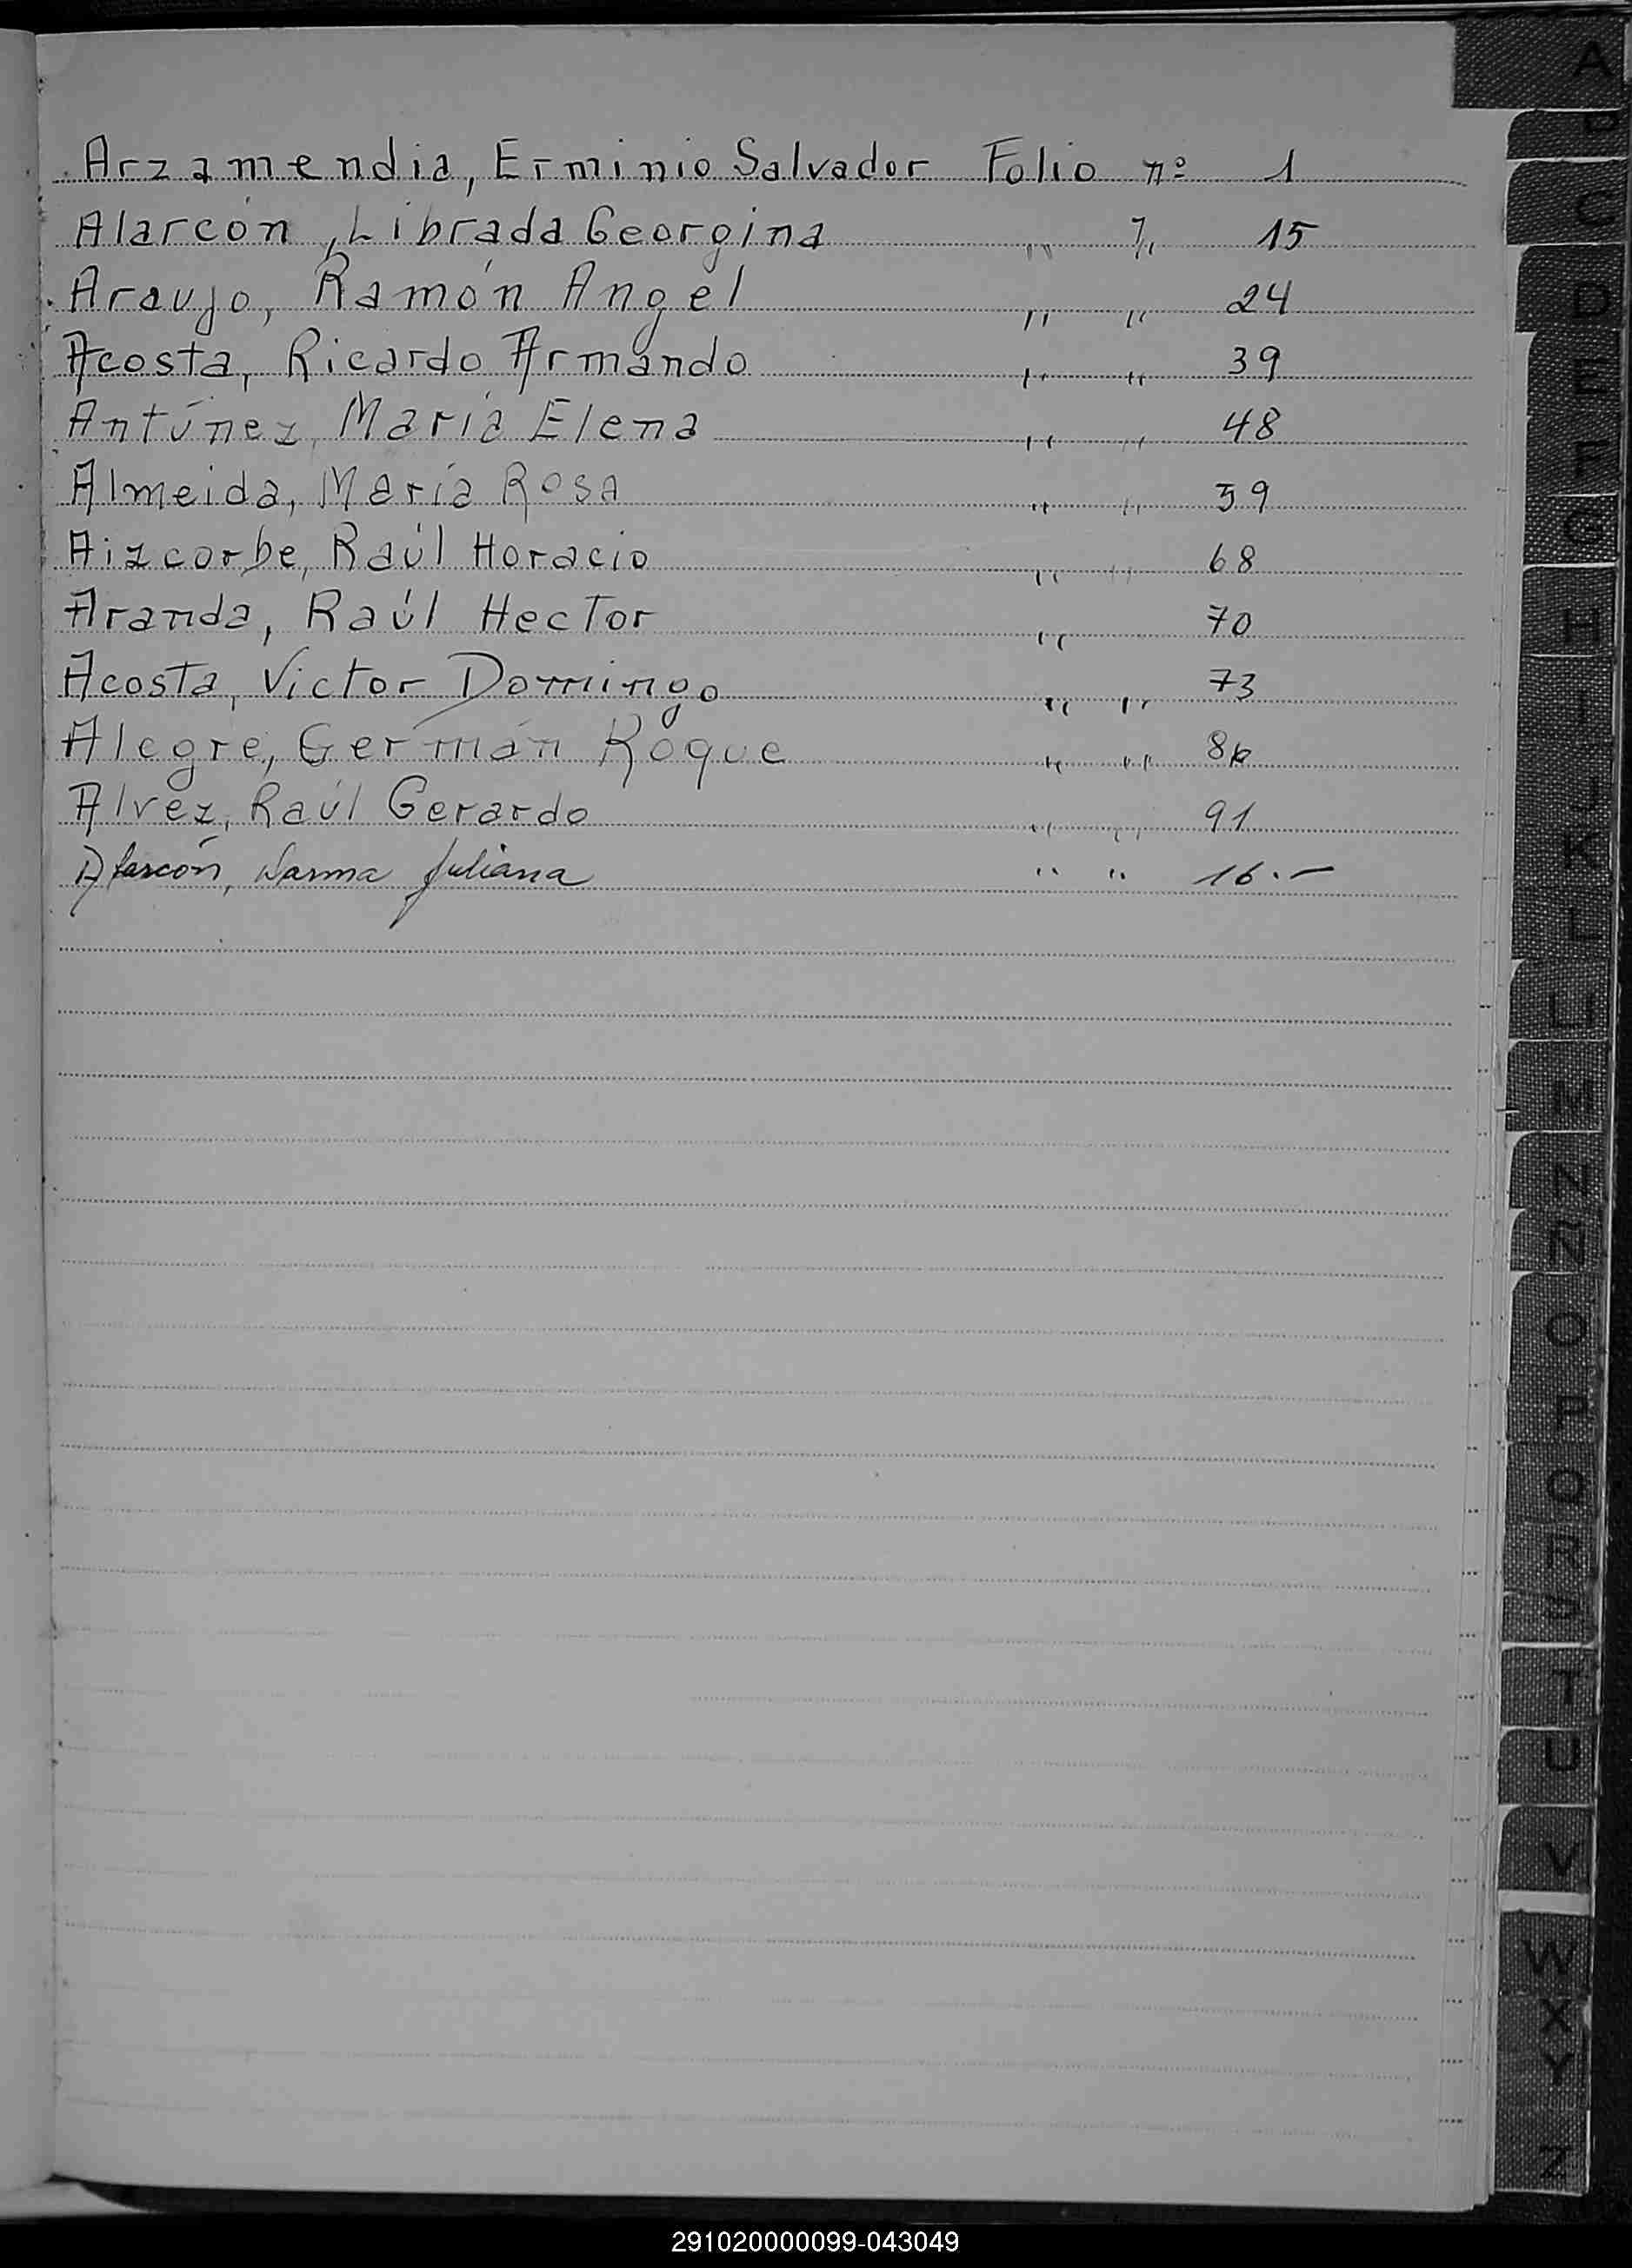 Arzamendia, Erminio Salvador Folio nº 1
Alarcón, Librada Georgina " " 15
Araujo, Ramón Angel " " 24
Acosta, Ricardo Armando " " 39
Antúnez, María Elena " " 48
Almeida, María Rosa " " 59
Aizcorbe, Raúl Horacio " " 68
Aranda, Raúl Hector " " 70
Acosta, Victor Domingo " " 73
Alegre, Germán Roque " "
Alvez, Raúl Gerardo " " 91
Alarcón, Norma Juliana " " 16.-
A
B
C
D
E
F
G
H
I
J
K
L
LL
M
N
Ñ
O
P
Q
R
S
T
U
V
W
X
Y
Z
291020000099-043049